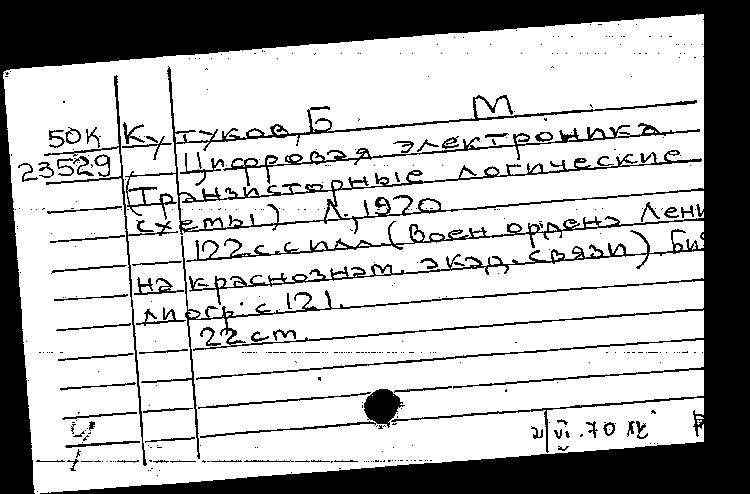 50К Кутуков, Б М
23529 Цифровая электроника
(Транзисторные логические
схемы) Л., 1970
122 с. с илл (Воен ордена Лени
на краснознам. акад. связи). Биб
лиогр: с. 121.
22 см.
VI.70